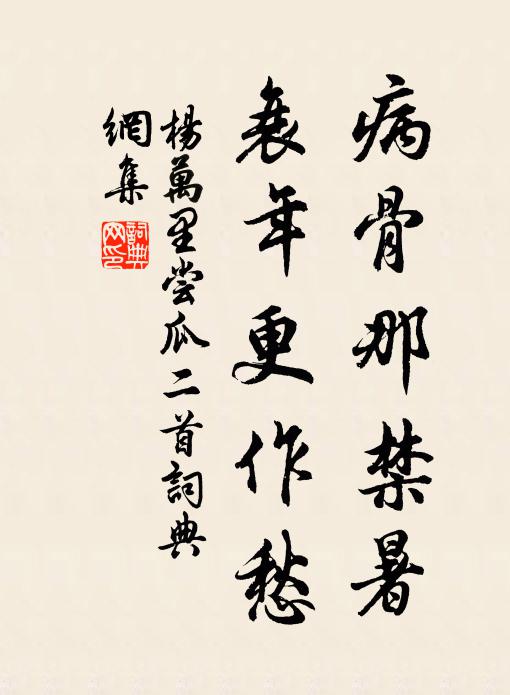 病骨那禁暑
衰年更作愁
楊萬里嘗瓜二首詞典
網集
詞典网印